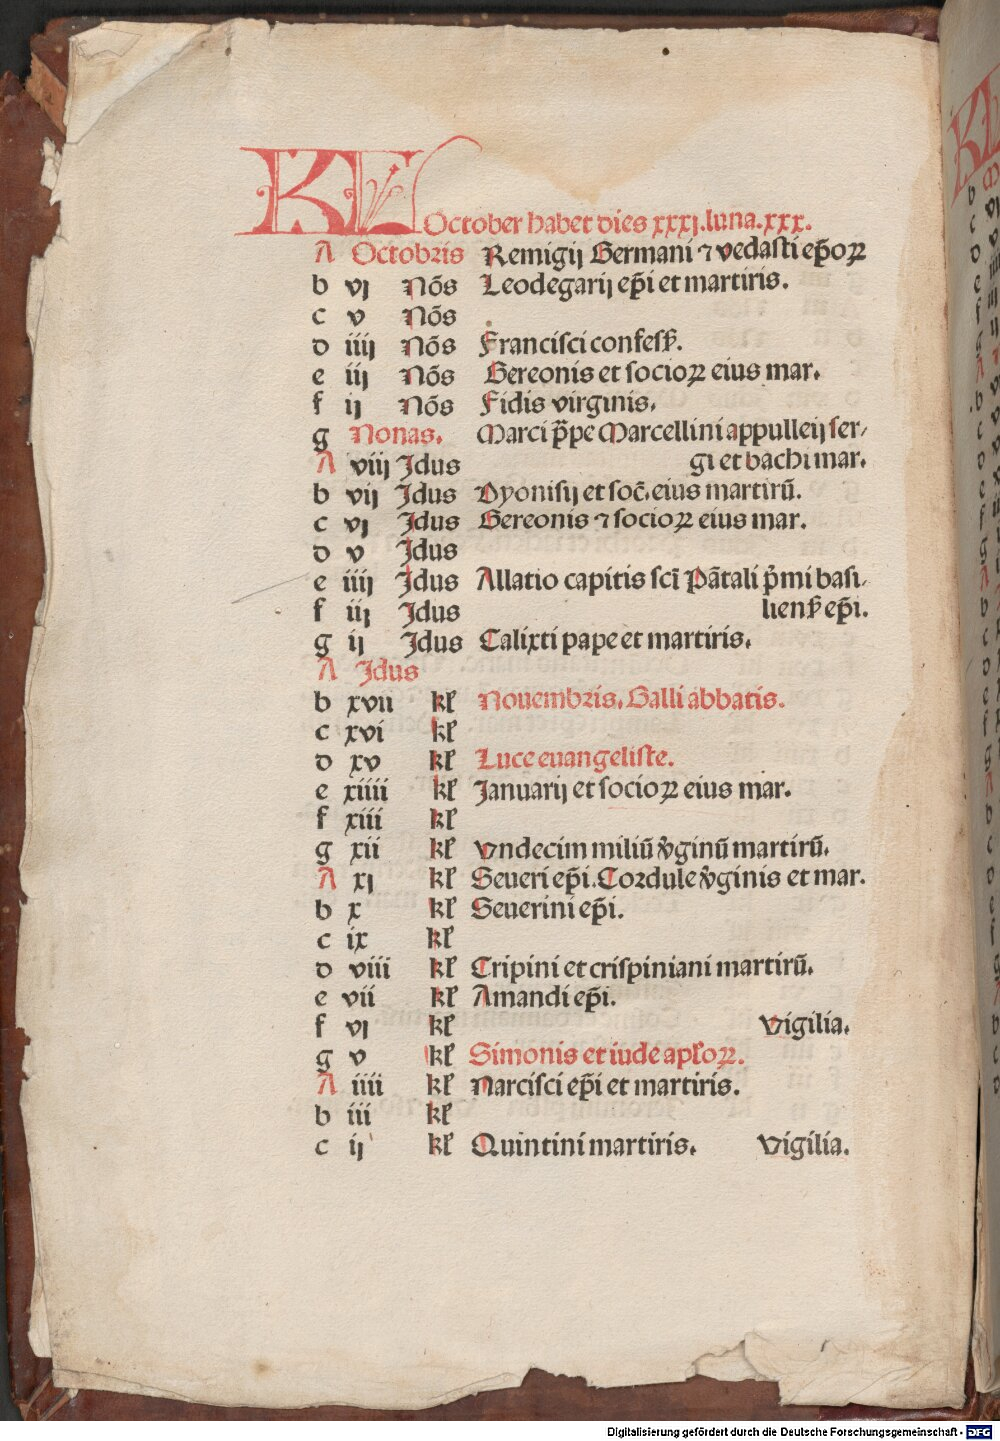 KL October habet dies xxxj. luna. xxx.
A Octobris Remigij Germani ⁊ vedasti ep̄oꝝ
b vj Nōs Leodegarij ep̄i et martiris.
c v Nōs
d iiij Nōs Francisci confesß.
e iij Nōs Gereonis et socioꝝ eius mar.
f ij Nōs Fidis virginis.
g Nonas. Marci p̄pe Marcellini appulleij ser-
A viij Jdus gi et bachi mar.
b vij Jdus Dyonisij et soc̄. eius martirū.
c vj Jdus Gereonis ⁊ socioꝝ eius mar.
d v Jdus
e iiij Jdus Allatio capitis sci̅ Pātali p̓mi basi-
f iij Jdus lienẜ ep̄i.
g ij Jdus Calixti pape et martiris.
A Jdus
b xvii kl̓ Nouembris. Galli abbatis.
c xvi kl̓
d xv kl̓ Luce euangeliste.
e xiiii kl̓ Januarij et socioꝝ eius mar.
f xiii kl̓
g xii kl̓ Vndecim miliū v̓ginū martirū.
A xj kl̓ Seueri ep̄i. Cordule v̓ginis et mar.
b x kl̓ Seuerini ep̄i.
c ix kl̓
d viii kl̓ Cripini et crispiniani martirū.
e vii kl̓ Amandi ep̄i.
f vj kl̓ Vigilia.
g v kl̓ Simonis et iude apl̓oꝝ.
A iiii kl̓ Narcisci ep̄i et martiris.
b iii kl̓
c ij kl̓ Quintini martiris. Vigilia.
Digitalisierung gefördert durch die Deutsche Forschungsgemeinschaft - DFG